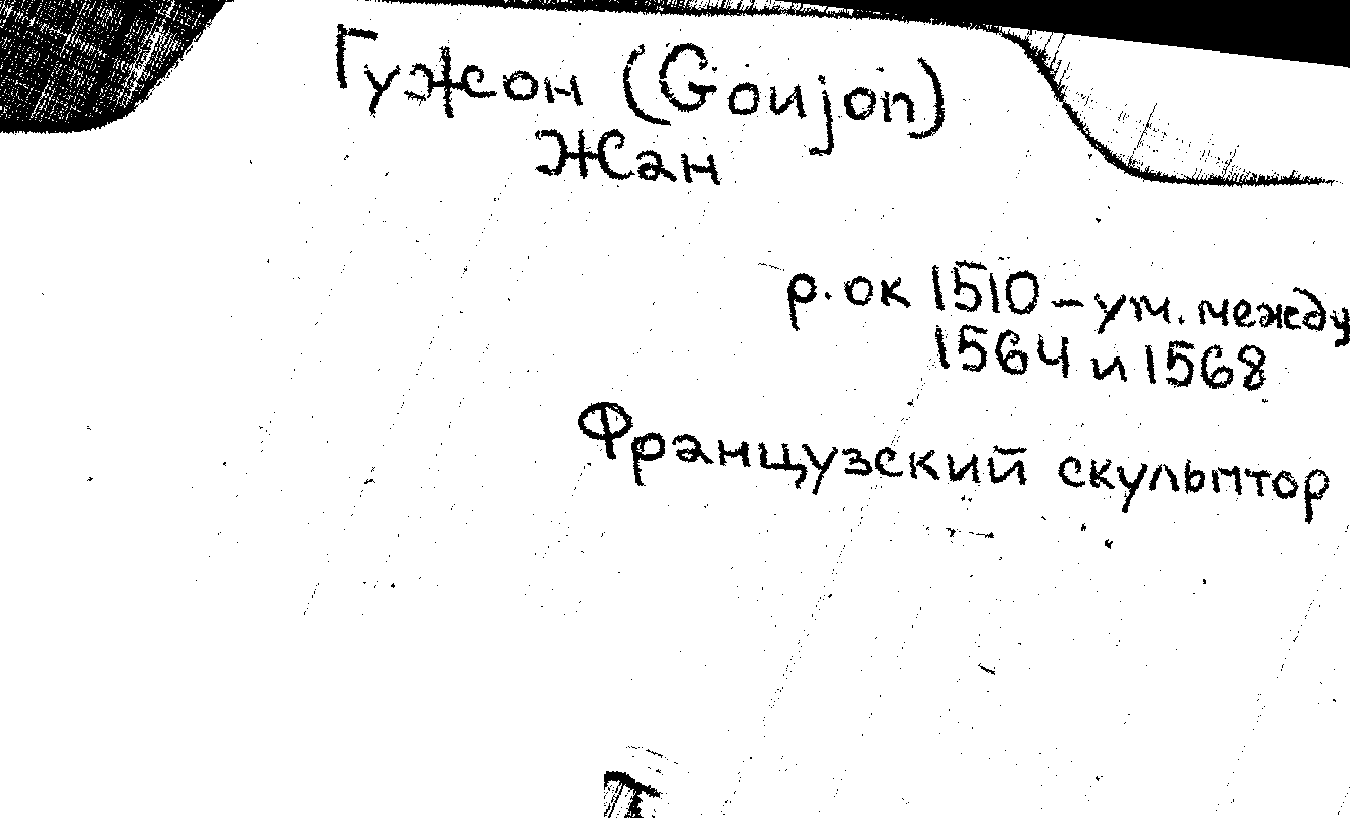 Гужон (Goujon)
Жан
р. ок 1510 – ум. между
1564 и 1568
Французский скульптор